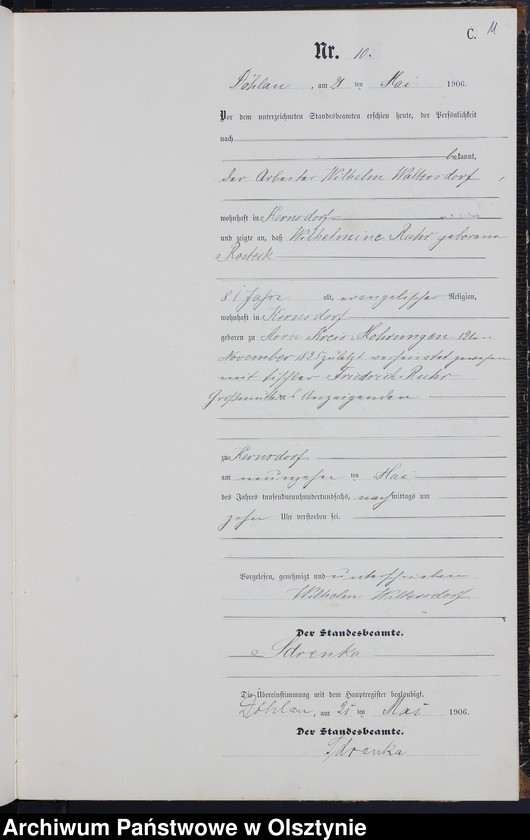 C. 11
Nr. 10.
Döhlau, am 21 ten Mai 1906.
Vor dem unterzeichneten Standesbeamten erschien heute, der Persönlichkeit
nach
bekannt,
der Arbeiter Wilhelm Waltersdorf,
wohnhaft in Kernsdorf
und zeigte an, daß Wilhelmine Ruhr geborene
Rosteck
81 Jahre alt, evangelischer Religion,
wohnhaft in Kernsdorf
geboren zu Horn Kreis Mohrungen
November 1825 zuletzt verheiratet gewesen
mit Tischler Friedrich Ruhr
Großmutter Anzeigenden
zu Kernsdorf
am neunzehn ten Mai
des Jahres tausendneunhundertundsechs, nachmittags um
zehn Uhr verstorben sei.
Vorgelesen, genehmigt und unterschrieben
Wilhelm Waltersdorf
Der Standesbeamte.
Sdrenka
Die Übereinstimmung mit dem Hauptregister beglaubigt.
Döhlau, am 21 ten Mai 1906.
Der Standesbeamte.
Sdrenka
Archiwum Państwowe w Olsztynie